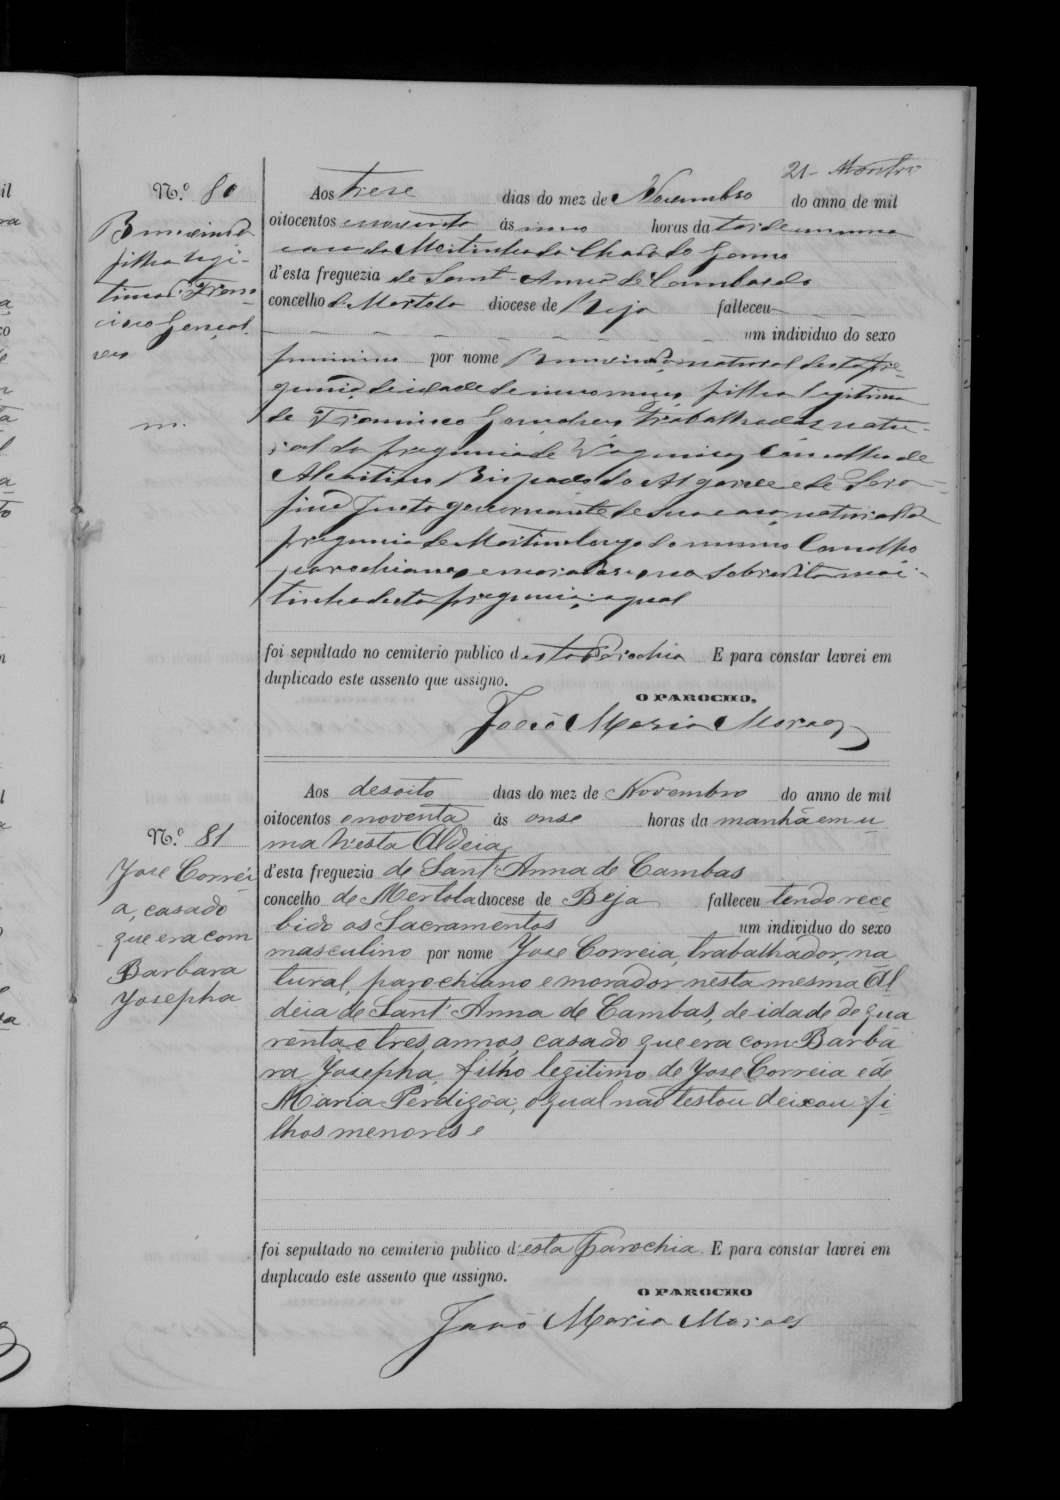 21- Montro
N.º 80
Aos trese dias do mez de Novembro do anno de mil
oitocentos e noventa ás horas da tarde em uma
da Chada do
filha legi-
tima de Fran-
cisco Gonçal-
ves
d'esta freguezia de Sant'Anna de Cambas do
concelho de Mertola diocese de Beja falleceu
um individuo do sexo
feminino por nome natural desta fre-
guezia, de idade de filha legitima
de Francisco Gonçalves, trabalhador, natu-
ral da freguezia de Vaqueiros, Concelho de
Alcoitim Bispado do Algarve e de Sera-
fina Justa governante de sua casa, natural da
freguezia de Martim longo do mesmo Concelho
parochianos e moradores na sobredita
desta freguezia; a qual
m.
foi sepultado no cemiterio publico d'esta Parochia E para constar lavrei em
duplicado este assento que assigno.
O PAROCHO,
João Maria Moraes
Aos desoito dias do mez de Novembro do anno de mil
oitocentos e noventa ás onse horas da manhã em u
ma n'esta Aldeia
N.º 81
Jose Correi
a, casado
que era com
Barbara
Josepha
d'esta freguezia de Sant'Anna de Cambas
concelho de Mertola diocese de Beja falleceu tendo rece
bido os Sacramentos um individuo do sexo
masculino por nome Jose Correia, trabalhador, na
tural, parochiano e morador nesta mesma Al
deia de Sant'Anna de Cambas, de idade de qua
renta e tres annos, casado que era com Barba
ra Josepha, filho legitimo de Jose Correia e de
Maria Perdigôa; o qual não testou deixou fi
lhos menores e
foi sepultado no cemiterio publico d'esta Parochia. E para constar lavrei em
duplicado este assento que assigno.
O PAROCHO
João Maria Moraes